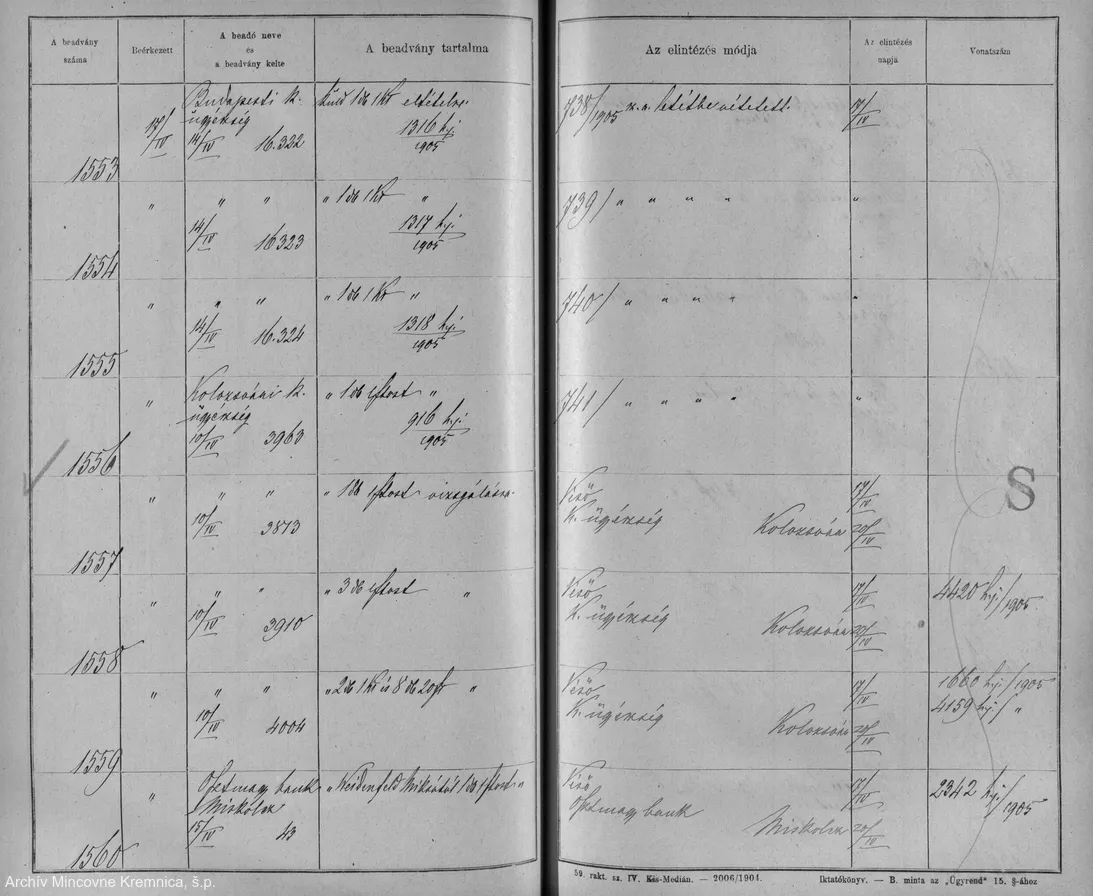 A beadvány száma
Beérkezett
A beadó neve és a beadvány kelte
A beadvány tartalma
Az elintézés módja
Az elintézés napja
Vonatszám
1553
17/IV
Budapesti k. ügyészség
14/IV 16.322
küld 1 db 1 Kr
1316 hj. 1905
738/1905
letétbe vétetett.
17/IV
1554
" " "
14/IV 16.323
" 1 db 1 Kr "
1317 hj. 1905
739/ " " " "
"
1555
" " "
14/IV 16.324
" 1 db 1 Kr "
1318 hj. 1905
740/ " " " "
"
1556
"
Kolozsvári k. ügyészség
10/IV 3963
" 1 db "
916 hj. 1905
741/ " " " "
"
1557
" " "
10/IV 3873
" 1 db vizsgálásra
Visó
K. ügyészség
Kolozsvár
17/IV
20/IV
S
1558
" " "
10/IV 3910
" 3 db "
Visó
K. ügyészség
Kolozsvár
17/IV
20/IV
4420 hj./1905
1559
" " "
10/IV 4004
" 2 db 1 Kr és 8 db 20 "
Visó
K. ügyészség
Kolozsvár
17/IV
20/IV
1660 hj./1905
4159 hj./ "
1560
"
bank
Miskolcz
15/IV 43
" 1 db "
Visó
bank
Miskolcz
17/IV
20/IV
2342 hj./1905
59. rakt. sz. IV. Kás-Medián. — 2006/1904.
Iktatókönyv. — B. minta az „Ügyrend" 15. §-ához
Archív Mincovne Kremnica, š.p.